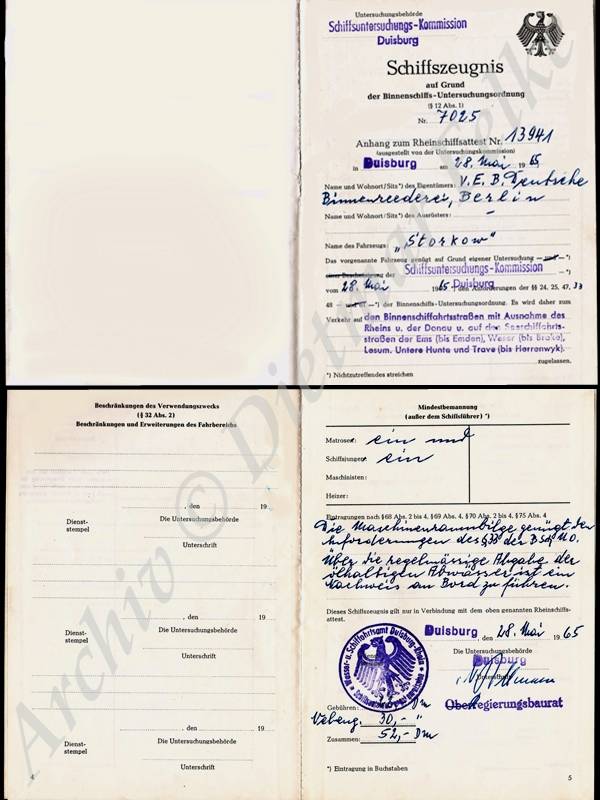 Untersuchungsbehörde
Schiffsuntersuchungs-Kommission
Duisburg
Schiffszeugnis
auf Grund
der Binnenschiffs-Untersuchungsordnung
(§ 12 Abs. 1)
Nr. 7025
Anhang zum Rheinschiffsattest Nr. 13941
(ausgestellt von der Untersuchungskommission)
in Duisburg am 28. Mai 1965
Name und Wohnort/Sitz*) des Eigentümers: V.E.B. Deutsche
Binnenreederei, Berlin
Name und Wohnort/Sitz*) des Ausrüsters: –
Name des Fahrzeugs: „Storkow"
Das vorgenannte Fahrzeug genügt auf Grund eigener Untersuchung — und — *)
der Schiffsuntersuchungs-Kommission — *)
vom 28. Mai 1965 Duisburg den Anforderungen der §§ 24, 25, 47, 33
48 — *) der Binnenschiffs-Untersuchungsordnung. Es wird daher zum
Verkehr auf den Binnenschiffahrtsstraßen mit Ausnahme des
Rheins u. der Donau u. auf den Seeschiffahrts-
straßen der Ems (bis Emden), Weser (bis Brake),
Lesum, Untere Hunte und Trave (bis Herrenwyk).
zugelassen.
*) Nichtzutreffendes streichen
Beschränkungen des Verwendungszwecks
(§ 32 Abs. 2)
Beschränkungen und Erweiterungen des Fahrbereichs
, den 19
Dienst-
stempel
Die Untersuchungsbehörde
Unterschrift
, den 19
Dienst-
stempel
Die Untersuchungsbehörde
Unterschrift
, den 19
Dienst-
stempel
Die Untersuchungsbehörde
Unterschrift
4
Mindestbemannung
(außer dem Schiffsführer) *)
Matrosen: ein und
Schiffsjungen: ein
Maschinisten:
Heizer:
Eintragungen nach §68 Abs. 2 bis 4, §69 Abs. 4, §70 Abs. 2 bis 4, §75 Abs. 4
Die Maschinenraumbilge genügt den
Anforderungen des §33 der BSch.U.O.
Über die regelmässige Abgabe der
ölhaltigen Abwässer ist ein
Nachweis an Bord zu führen.
Dieses Schiffszeugnis gilt nur in Verbindung mit dem oben genannten Rheinschiffs-
attest.
Duisburg, den 28. Mai 1965
Die Untersuchungsbehörde
Duisburg
Wasser- u. Schiffahrtsamt Duisburg-Rhein
Unterschrift
Oberregierungsbaurat
Gebühren: Dm
30,- "
Zusammen: 52,- Dm
*) Eintragung in Buchstaben
5
Archiv © Dietmar